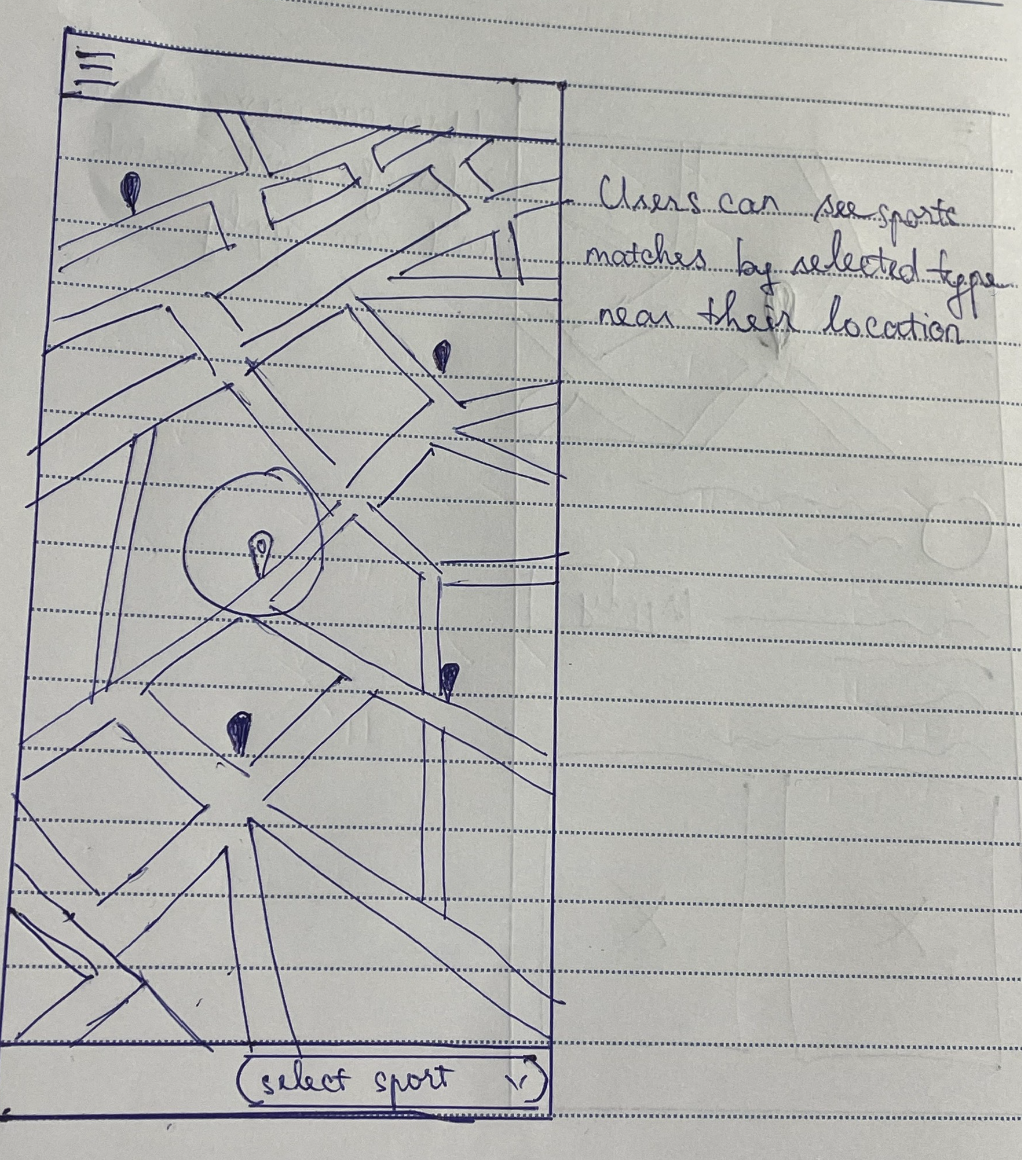 Users can see sports
matches by selected type
near their location
select sport